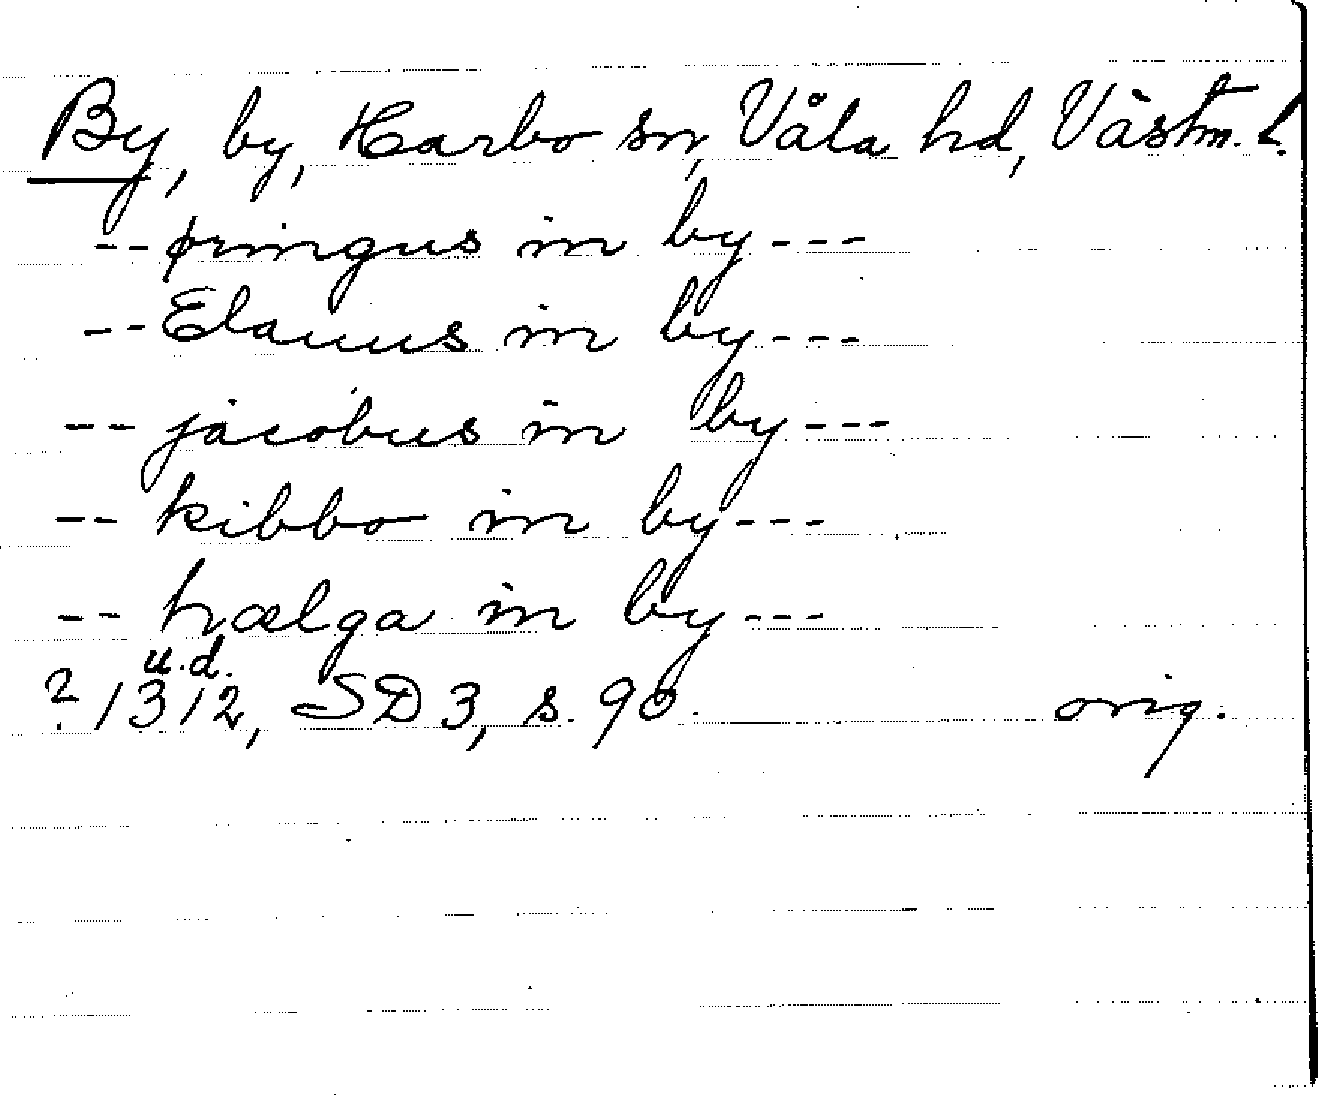 By, by, Harbo sn, Våla hd, Västm. l.
-- pringus in by ---
-- Elauus in by ---
-- jacobus in by ---
-- kibbo in by ---
-- hælga in by ---
u.d.
? 1312, SD 3, s. 90. orig.